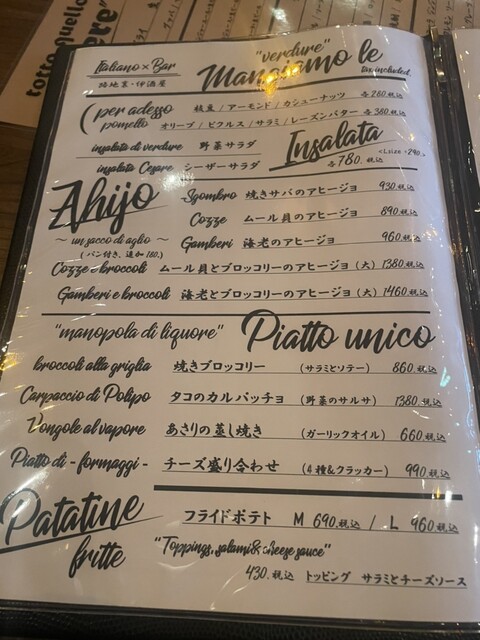 Italiano × Bar
路地裏・伊酒屋
"verdure"
Mangiamo le
tax included.
(per adesso 枝豆 / アーモンド / カシューナッツ 各280.税込
pometto オリーブ / ピクルス / サラミ / レーズンバター 各380.税込
insalata di verdure 野菜サラダ
insalata Cesare シーザーサラダ
Insalata
各780.税込
Ahijo
~ un sacco di aglio ~
(パン付き、追加160.)
Sgombro 焼きサバのアヒージョ 930.税込
Cozze ムール貝のアヒージョ 890.税込
Gamberi 海老のアヒージョ 960.税込
Cozze e broccoli ムール貝とブロッコリーのアヒージョ (大) 1380.税込
Gamberi e broccoli 海老とブロッコリーのアヒージョ (大) 1460.税込
"manopola di liquore" Piatto unico
broccoli alla griglia 焼きブロッコリー (サラミとソテー) 860.税込
Carpaccio di Polipo タコのカルパッチョ (野菜のサルサ) 1380.税込
Vongole al vapore あさりの蒸し焼き (ガーリックオイル) 660.税込
Piatto di - formaggi - チーズ盛り合わせ (4種&クラッカー) 990.税込
Patatine
fritte
フライドポテト M 690.税込 / L 960.税込
"Toppings, salami & cheese sauce"
430.税込 トッピング サラミとチーズソース